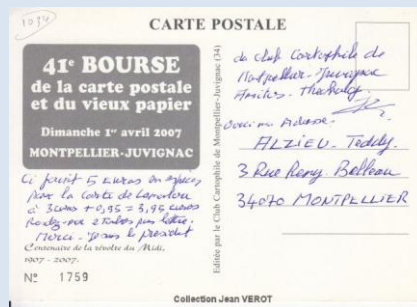 1034
CARTE POSTALE
41e BOURSE
de la carte postale
et du vieux papier
Dimanche 1er avril 2007
MONTPELLIER-JUVIGNAC
Ci joint 5 euros en espèces
pour la carte de
à 3 euros + 0,95 = 3,95 euros
2 timbres pour lettre.
Merci - je suis le président
Centenaire de la révolte du Midi,
1907 - 2007.
N° 1759
Editée par le Club Cartophile de Montpellier-Juvignac (34)
du Club Cartophile de
Montpellier-Juvignac
Amitiés
mon Adresse.
ALZIEU Teddy.
3 Rue Remy Belleau
34070 MONTPELLIER
Collection Jean VEROT